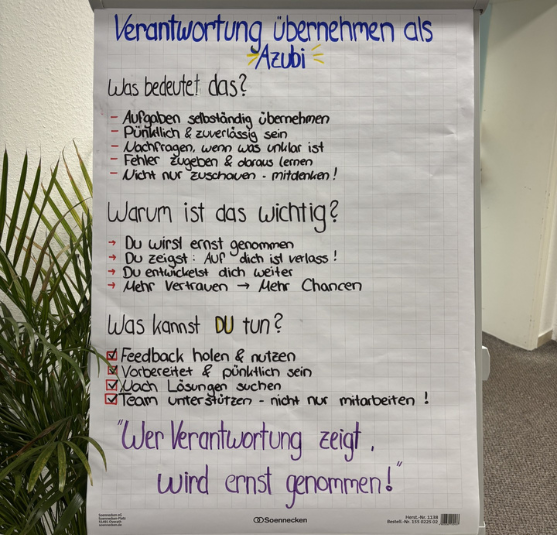 Verantwortung übernehmen als
Azubi
Was bedeutet das?
- Aufgaben selbständig übernehmen
- Pünktlich & zuverlässig sein
- Nachfragen, wenn was unklar ist
- Fehler zugeben & daraus lernen
- Nicht nur zuschauen - mitdenken!
Warum ist das wichtig?
→ Du wirst ernst genommen
→ Du zeigst: Auf dich ist verlass!
→ Du entwickelst dich weiter
→ Mehr Vertrauen → Mehr Chancen
Was kannst DU tun?
☑ Feedback holen & nutzen
☑ Vorbereitet & pünktlich sein
☑ Nach Lösungen suchen
☑ Team unterstützen - nicht nur mitarbeiten!
"Wer Verantwortung zeigt,
wird ernst genommen!"
Soennecken